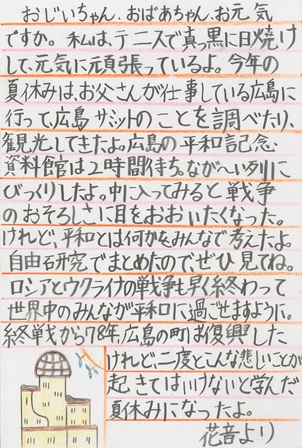 おじいちゃん、おばあちゃん、お元気
ですか。私は、テニスで真っ黒に日焼け
して、元気に頑張っているよ。今年の
夏休みは、お父さんが仕事している広島に
行って、広島サミットのことを調べたり、
観光してきたよ。広島の平和記念
資料館は2時間待ち。ながーい列に
びっくりしたよ。中に入ってみると戦争
のおそろしさに目をおおいたくなった。
けれど、平和とは何かをみんなで考えたよ。
自由研究でまとめたので、ぜひ見てね。
ロシアとウクライナの戦争も早く終わって
世界中のみんなが平和に過ごせますように。
終戦から78年、広島の町は復興した
けれど、二度とこんな悲しいことが
起きてはいけないと学んだ
夏休みになったよ。
花音より